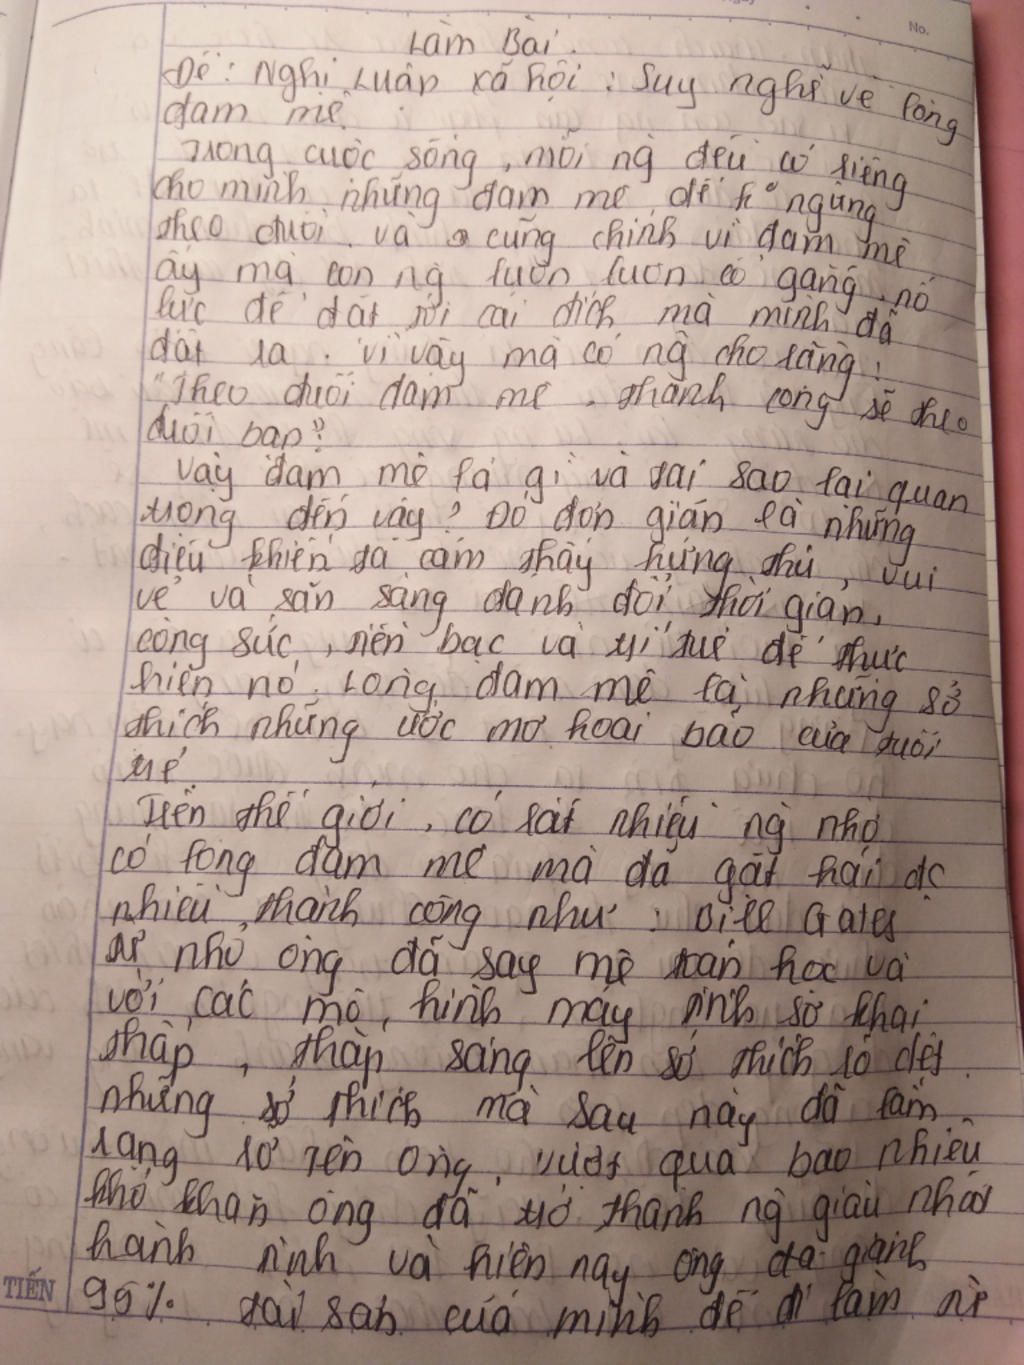 No.
Làm Bài.
Đề: Nghị Luận xã hội: Suy nghĩ về lòng
đam mê.
Trong cuộc sống, mỗi ng đều có riêng
cho mình những đam mê để k° ngừng
theo đuổi. và cũng chính vì đam mê
ấy mà con ng luôn luôn cố gắng, nỗ
lực để đạt tới cái đích mà mình đã
đặt ra. Vì vậy mà có ng cho rằng:
"Theo đuổi đam mê, thành công sẽ theo
đuổi bạn"
Vậy đam mê là gì và tại sao lại quan
trọng đến vậy? Đó đơn giản là những
điều khiến ta cảm thấy hứng thú, vui
vẻ và sẵn sàng đánh đổi thời gian,
công sức, tiền bạc và trí tuệ để thực
hiện nó. Lòng đam mê là những sở
thích những ước mơ hoài bão của tuổi
trẻ
Trên thế giới, có rất nhiều ng nhờ
có lòng đam mê mà đã gặt hái đc
nhiều thành công như: Bill Gates
từ nhỏ ông đã say mê toán học và
với các mô hình máy tính sơ khai
thấp, thắp sáng lên sở thích rõ dệt
những sở thích mà sau này đã làm
rạng rỡ tên ông, vượt qua bao nhiêu
khó khăn ông đã trở thành ng giàu nhất
hành tinh và hiện nay ông đã giành
95% tài sản của mình để đi làm từ
TIẾN